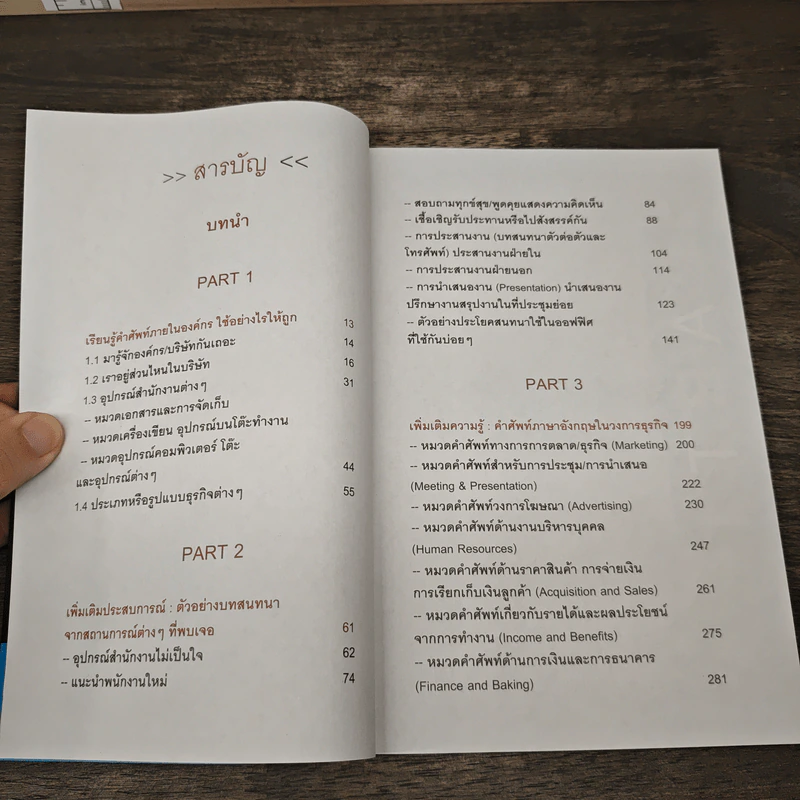 >> สารบัญ <<
บทนำ
PART 1
เรียนรู้คำศัพท์ภายในองค์กร ใช้อย่างไรให้ถูก 13
1.1 มารู้จักองค์กร/บริษัทกันเถอะ 14
1.2 เราอยู่ส่วนไหนในบริษัท 16
1.3 อุปกรณ์สำนักงานต่างๆ 31
-- หมวดเอกสารและการจัดเก็บ
-- หมวดเครื่องเขียน อุปกรณ์บนโต๊ะทำงาน
-- หมวดอุปกรณ์คอมพิวเตอร์ โต๊ะ
และอุปกรณ์ต่างๆ 44
1.4 ประเภทหรือรูปแบบธุรกิจต่างๆ 55
PART 2
เพิ่มเติมประสบการณ์ : ตัวอย่างบทสนทนา
จากสถานการณ์ต่างๆ ที่พบเจอ 61
-- อุปกรณ์สำนักงานไม่เป็นใจ 62
-- แนะนำพนักงานใหม่ 74
-- สอบถามทุกข์สุข/พูดคุยแสดงความคิดเห็น 84
-- เชื้อเชิญรับประทานหรือไปสังสรรค์กัน 88
-- การประสานงาน (บทสนทนาตัวต่อตัวและ
โทรศัพท์) ประสานงานฝ่ายใน 104
-- การประสานงานฝ่ายนอก 114
-- การนำเสนองาน (Presentation) นำเสนองาน
ปรึกษางานสรุปงานในที่ประชุมย่อย 123
-- ตัวอย่างประโยคสนทนาใช้ในออฟฟิศ
ที่ใช้กันบ่อยๆ 141
PART 3
เพิ่มเติมความรู้ : คำศัพท์ภาษาอังกฤษในวงการธุรกิจ 199
-- หมวดคำศัพท์ทางการการตลาด/ธุรกิจ (Marketing) 200
-- หมวดคำศัพท์สำหรับการประชุม/การนำเสนอ
(Meeting & Presentation) 222
-- หมวดคำศัพท์วงการโฆษณา (Advertising) 230
-- หมวดคำศัพท์ด้านงานบริหารบุคคล
(Human Resources) 247
-- หมวดคำศัพท์ด้านราคาสินค้า การจ่ายเงิน
การเรียกเก็บเงินลูกค้า (Acquisition and Sales) 261
-- หมวดคำศัพท์เกี่ยวกับรายได้และผลประโยชน์
จากการทำงาน (Income and Benefits) 275
-- หมวดคำศัพท์ด้านการเงินและการธนาคาร
(Finance and Baking) 281